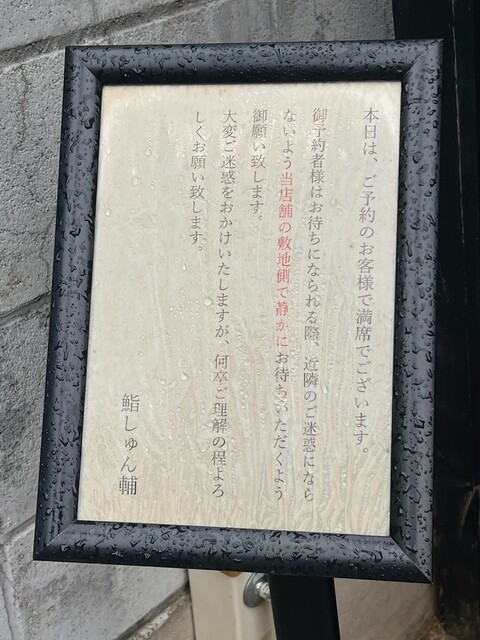 本日は、ご予約のお客様で満席でございます。
御予約者様はお待ちになられる際、近隣のご迷惑になら
ないよう当店舗の敷地側で静かにお待ちいただくよう
御願い致します。
大変ご迷惑をおかけいたしますが、何卒ご理解の程よろ
しくお願い致します。
鮨しゅん輔